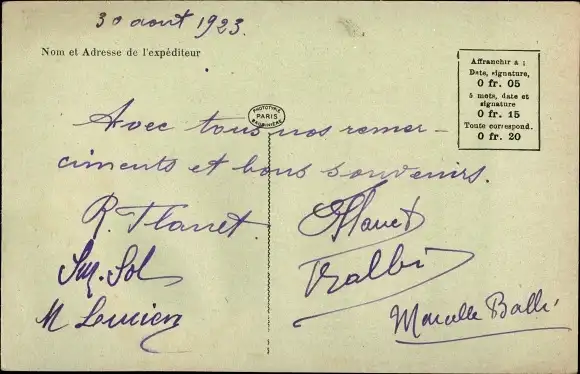 30 août 1923.
Nom et Adresse de l'expéditeur
Affranchir a :
Date, signature,
0 fr. 05
5 mots, date et
signature
0 fr. 15
Toute correspond.
0 fr. 20
PHOTOTYPIE
PARIS
Avec tous nos remer-
ciments et bons souvenirs.
R. Planet.
Planet
Sol
M Lucien
Marcelle Balbi